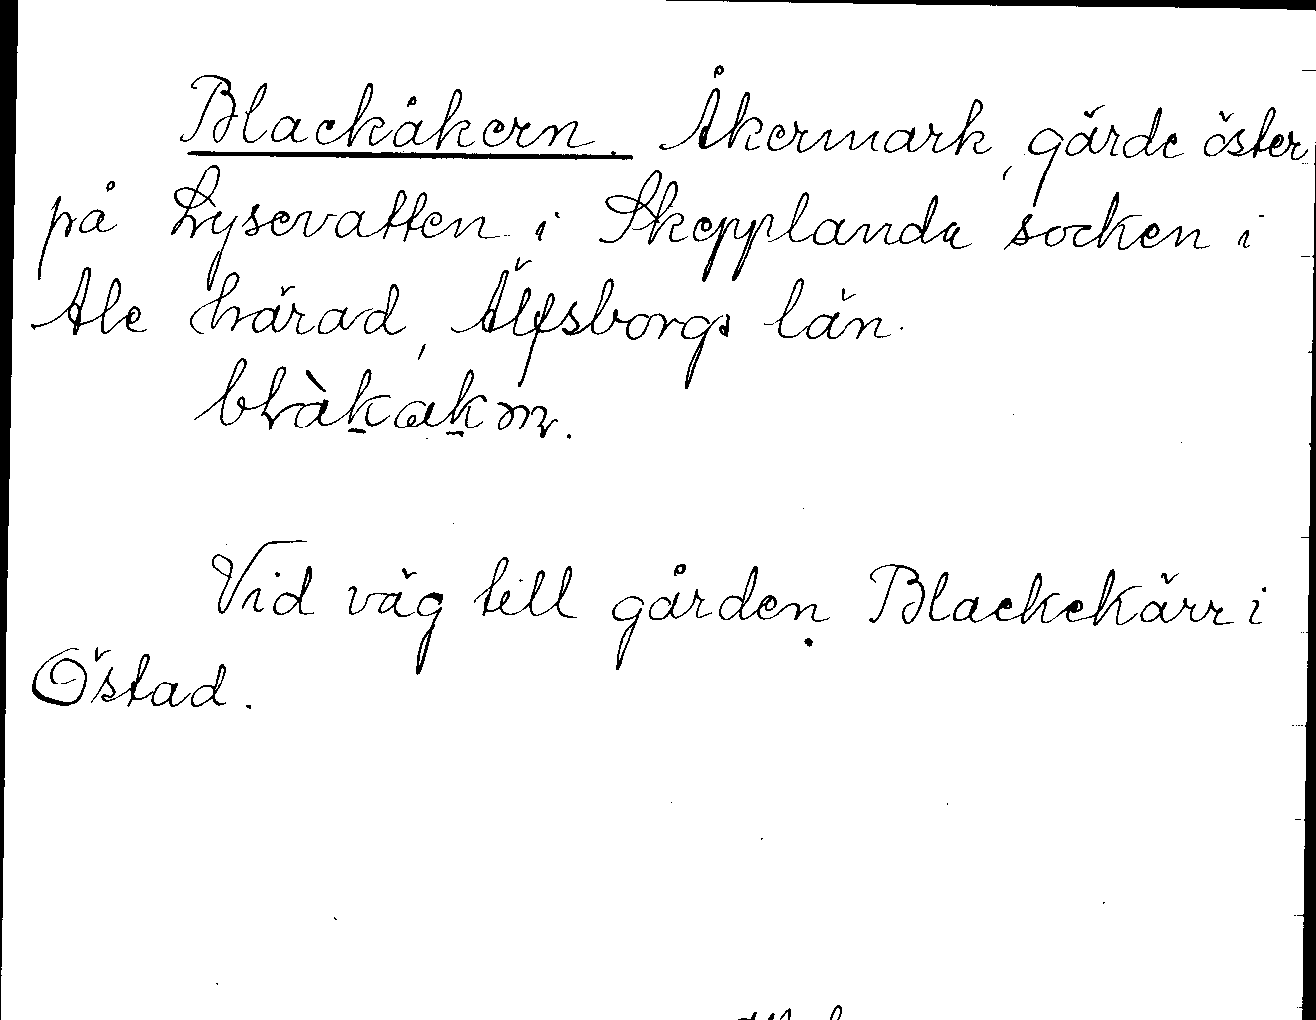 Blackåkern. Åkermark, gärde öster
på Lysevatten i Skepplanda socken i
Ale härad, Älfsborgs län.
Vid väg till gården Blackekärr i
Östad.